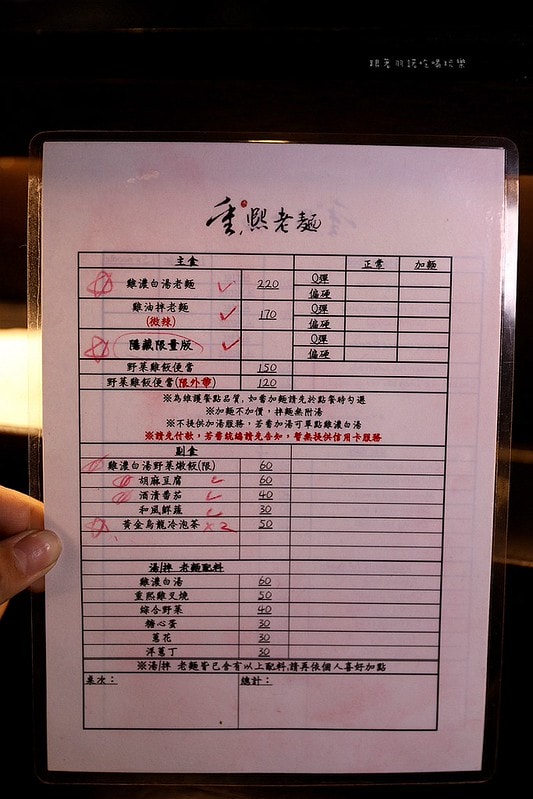 跟著羽諾吃喝玩樂
重熙老麵
主食 正常 加麵
雞濃白湯老麵 220 Q彈
偏硬
雞油拌老麵 170 Q彈
(微辣) 偏硬
隱藏限量版 Q彈
偏硬
野菜雞飯便當 150
野菜雞飯便當(限外帶) 120
※為維護餐點品質, 如需加麵請先於點餐時勾選
※加麵不加價, 拌麵無附湯
※不提供加湯服務, 若需加湯可單點雞濃白湯
※請先付款, 若需統編請先告知, 暫無提供信用卡服務
副食
雞濃白湯野菜燉飯(限) 60
胡麻豆腐 60
酒漬番茄 40
和風鮮蔬 30
黃金烏龍冷泡茶 x2 50
湯/拌 老麵配料
雞濃白湯 60
重熙雞叉燒 50
綜合野菜 40
糖心蛋 30
蔥花 30
洋蔥丁 30
※湯/拌 老麵皆已含有以上配料,請再依個人喜好加點
桌次： 總計：